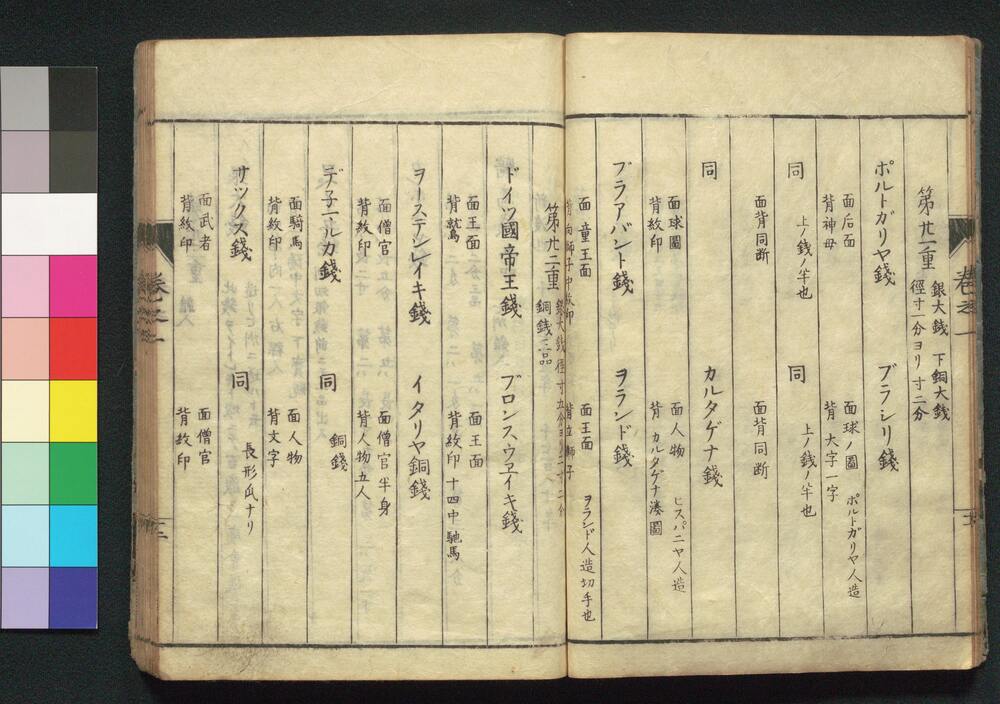 第廿一重
銀大銭 下銅大銭
徑寸一分ヨリ 寸二分
ポルトガリヤ錢
面后面
背神母
ブラシリ錢
面球ノ圖 ポルトガリヤ人造
背 大字一字
同
上ノ銭ノ半也
同
上ノ銭ノ半也
面背同断
面背同断
同
面球圖
背紋印
カルタゲナ錢
面人物 ヒスパニヤ人造
背 カルタゲナ湊圖
ブラアバント錢
面 童王面
背両獅子中紋印
ヲランド錢
面王面 ヲランド人造切手也
背立獅子
第廿二重
銀大銭徑寸五分ヨリ二寸二分
銅錢三品
ドイツ國帝王錢
面王面
背鷲
ブロンスウヱイキ錢
面王面
背紋印 十四中馳馬
ヲーステンレイキ錢
面僧官
背紋印
イタリヤ銅錢
面僧官半身
背人物五人
デ子ールカ錢
面騎馬
背紋印
同
銅錢
面人物
背文字
サックス錢
面武者
背紋印
同
長形瓜ナリ
面僧官
背紋印
卷之一
卷之一